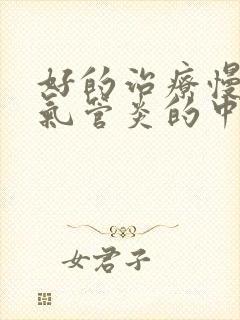 好的治療慢
氣管炎的中
女君子